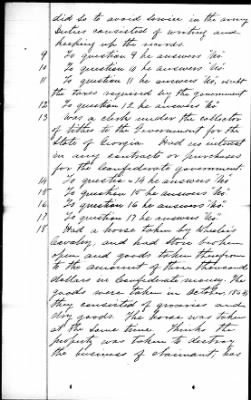 did so to avoid service in the army
Duties consisted of writing and
keeping up the records.
9 To question 9 he answers "No"
10 To question 10 he answers "No"
11 To question 11 he answers "No", except
the taxes required by the government
12 To question 12 he answers "No"
13 Was a clerk under the collector
of tithes to the Government for the
State of Georgia. Had no interest
in any contracts or purchases
for the Confederate government.
14 To question 14 he answers "No"
15 To question 15 he answers "No"
16 To question 16 he answers "No"
17 To question 17 he answers "No"
18 Had a horse taken by Wheeler's
Cavalry, and had store broken
open and goods taken therefrom
to the amount of three thousand
dollars in Confederate money. The
goods were taken in October, 1864
they consisted of groceries and
dry goods. The horse was taken
at the same time. Thinks the
property was taken to destroy
the business of claimant, has